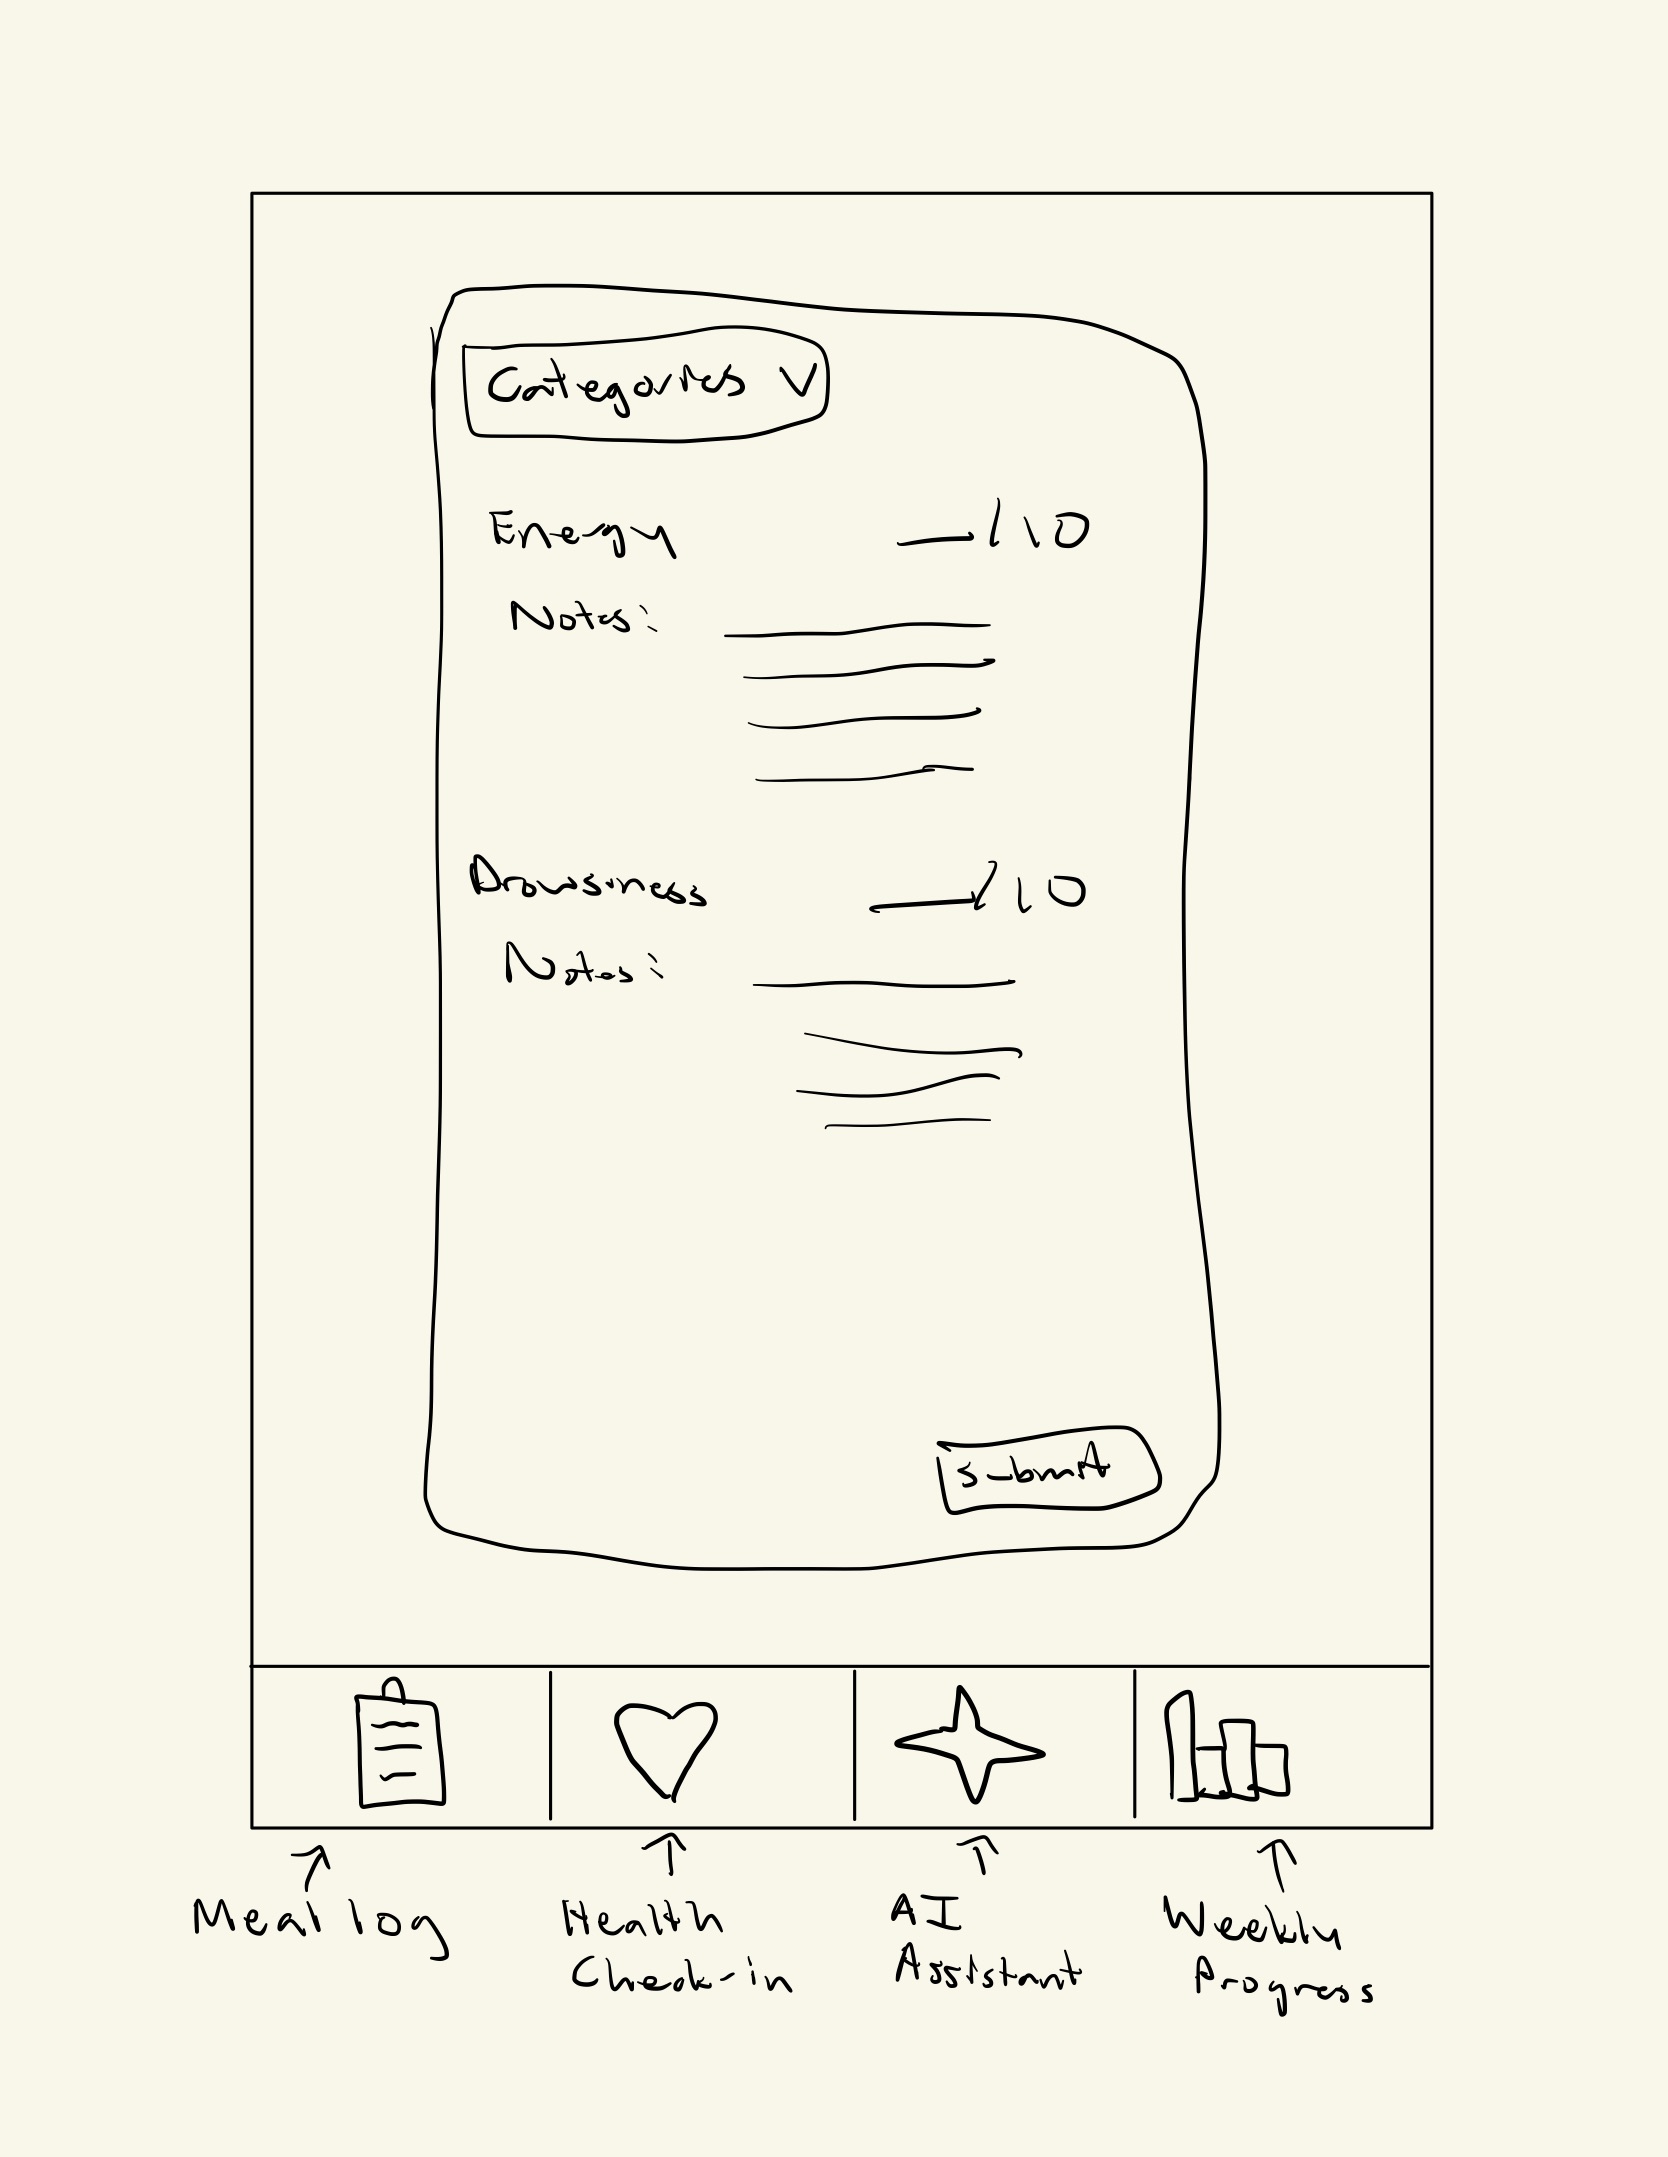 Categories V
Energy __/10
Notes:
Drowsiness __/10
Notes:
Submit
Meal log
Health
Check-in
AI
Assistant
Weekly
Progress